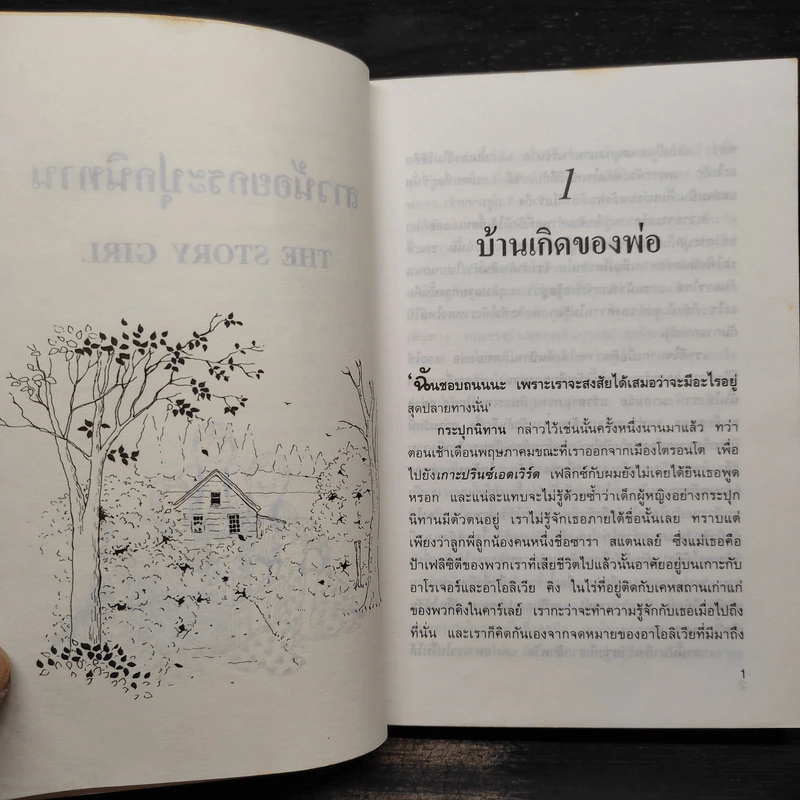 สาวน้อยกระปุกนิทาน
THE STORY GIRL
1
บ้านเกิดของพ่อ
'ฉันชอบถนนนะ เพราะเราจะสงสัยได้เสมอว่าจะมีอะไรอยู่
สุดปลายทางนั่น'
กระปุกนิทาน กล่าวไว้เช่นนั้นครั้งหนึ่งนานมาแล้ว ทว่า
ตอนเช้าเดือนพฤษภาคมขณะที่เราออกจากเมืองโตรอนโต เพื่อ
ไปยังเกาะปรินซ์เอดเวิร์ด เฟลิกซ์กับผมยังไม่เคยได้ยินเธอพูด
หรอก และแน่ละแทบจะไม่รู้ด้วยซ้ำว่าเด็กผู้หญิงอย่างกระปุก
นิทานมีตัวตนอยู่ เราไม่รู้จักเธอภายใต้ชื่อนั้นเลย ทราบแต่
เพียงว่าลูกพี่ลูกน้องคนหนึ่งชื่อซารา สแตนเลย์ ซึ่งแม่เธอคือ
ป้าเฟลิซิตีของพวกเราที่เสียชีวิตไปแล้วนั้นอาศัยอยู่บนเกาะกับ
อาโรเจอร์และอาโอลิเวีย คิง ในไร่ที่อยู่ติดกับเคหสถานเก่าแก่
ของพวกคิงในคาร์เลย์ เรากะว่าจะทำความรู้จักกับเธอเมื่อไปถึง
ที่นั่น และเราก็คิดกันเองจากจดหมายของอาโอลิเวียที่มีมาถึง
1